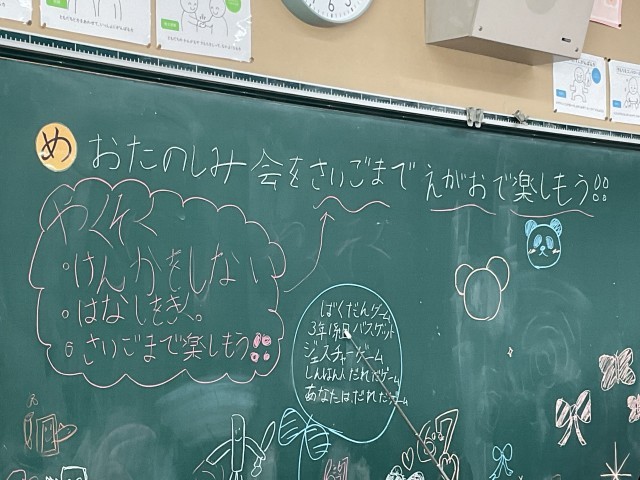 め おたのしみ会をさいごまでえがおで楽しもう!!
やくそく
・けんかをしない
・はなしをきく。
・さいごまで楽しもう!!
ばくだんゲーム
3年1組バスケット
ジェスチャーゲーム
しんぱん、だれだゲーム
あなたは、だれだゲーム